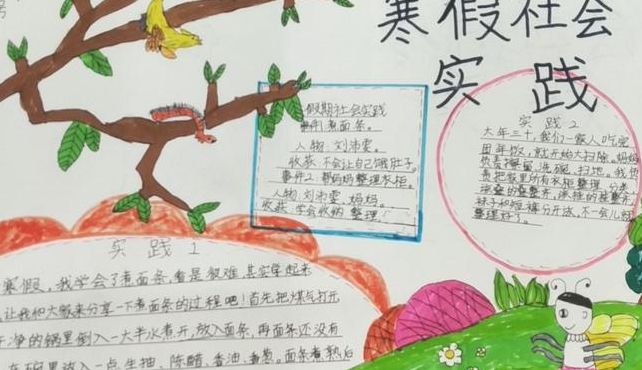 寒假社会
实践
假期社会实践
事件1 煮面条。
人物: 刘沛雯
收获: 不会让自己饿肚子。
事件2: 帮妈妈整理衣柜。
人物: 刘沛雯, 妈妈。
收获: 学会收纳 整理
实践 2
大年三十, 我们一家人吃完
团年饭, 就开始大扫除。妈妈
负责
洗碗、扫地。我负
责把家里所有衣柜整理 分类
袜子和短裤分开放, 不一会儿就
整理好了。
实践 1
寒假, 我学会了煮面条, 看是很难, 其实学起来
让我和大家来分享一下煮面条的过程吧! 首先把煤气打开
净的锅里倒入一大半水煮开, 放入面条, 再面条还没有
在碗里放入一点生抽、陈醋、香油、葱。面条煮熟后